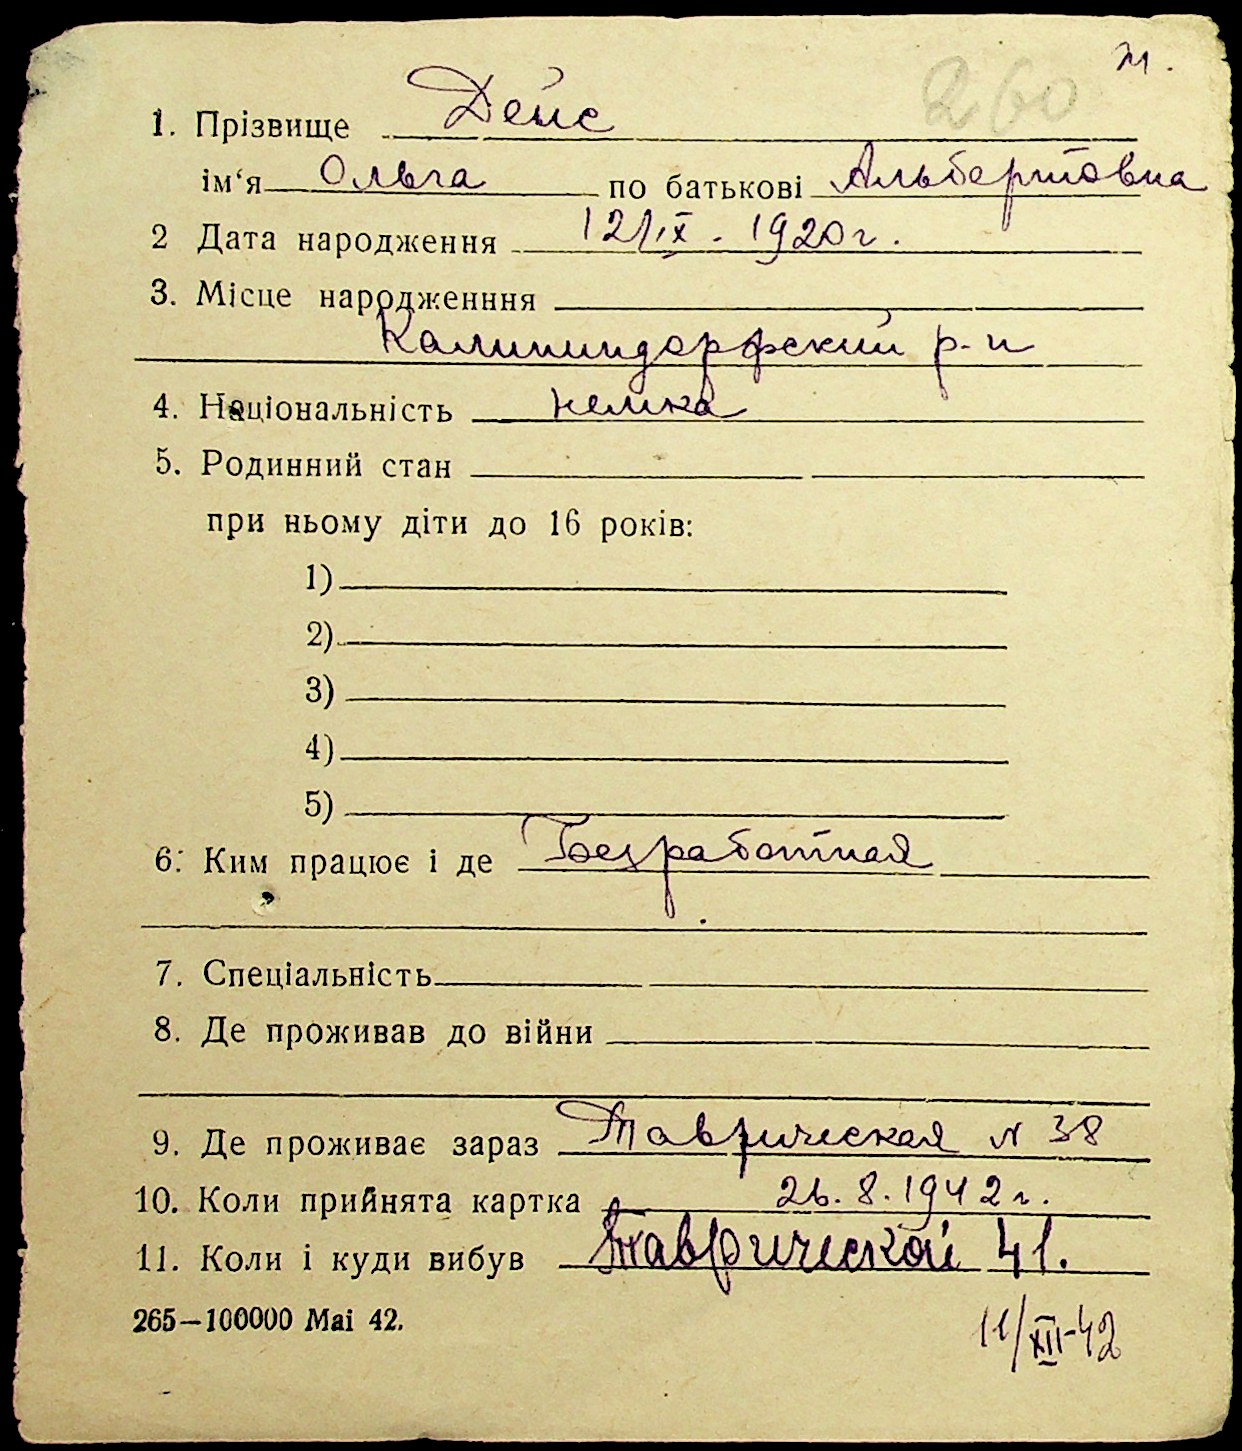 260
1. Прізвище Дейс
ім‘я Ольга по батькові Альбертовна
2 Дата народження 12/IX. 1920 г.
3. Місце народженння
Калининдорфский р-н
4. Національність немка
5. Родинний стан
при ньому діти до 16 років:
1)
2)
3)
4)
5)
6. Ким працює і де Безработная
7. Спеціальність
8. Де проживав до війни
9. Де проживає зараз Таврическая N 38
10. Коли прийнята картка 26.8.1942 г.
11. Коли і куди вибув Таврической 41.
265—100000 Mai 42.
11/XII-42